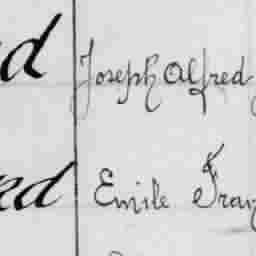 d Joseph Alfred
ed Emile Fran